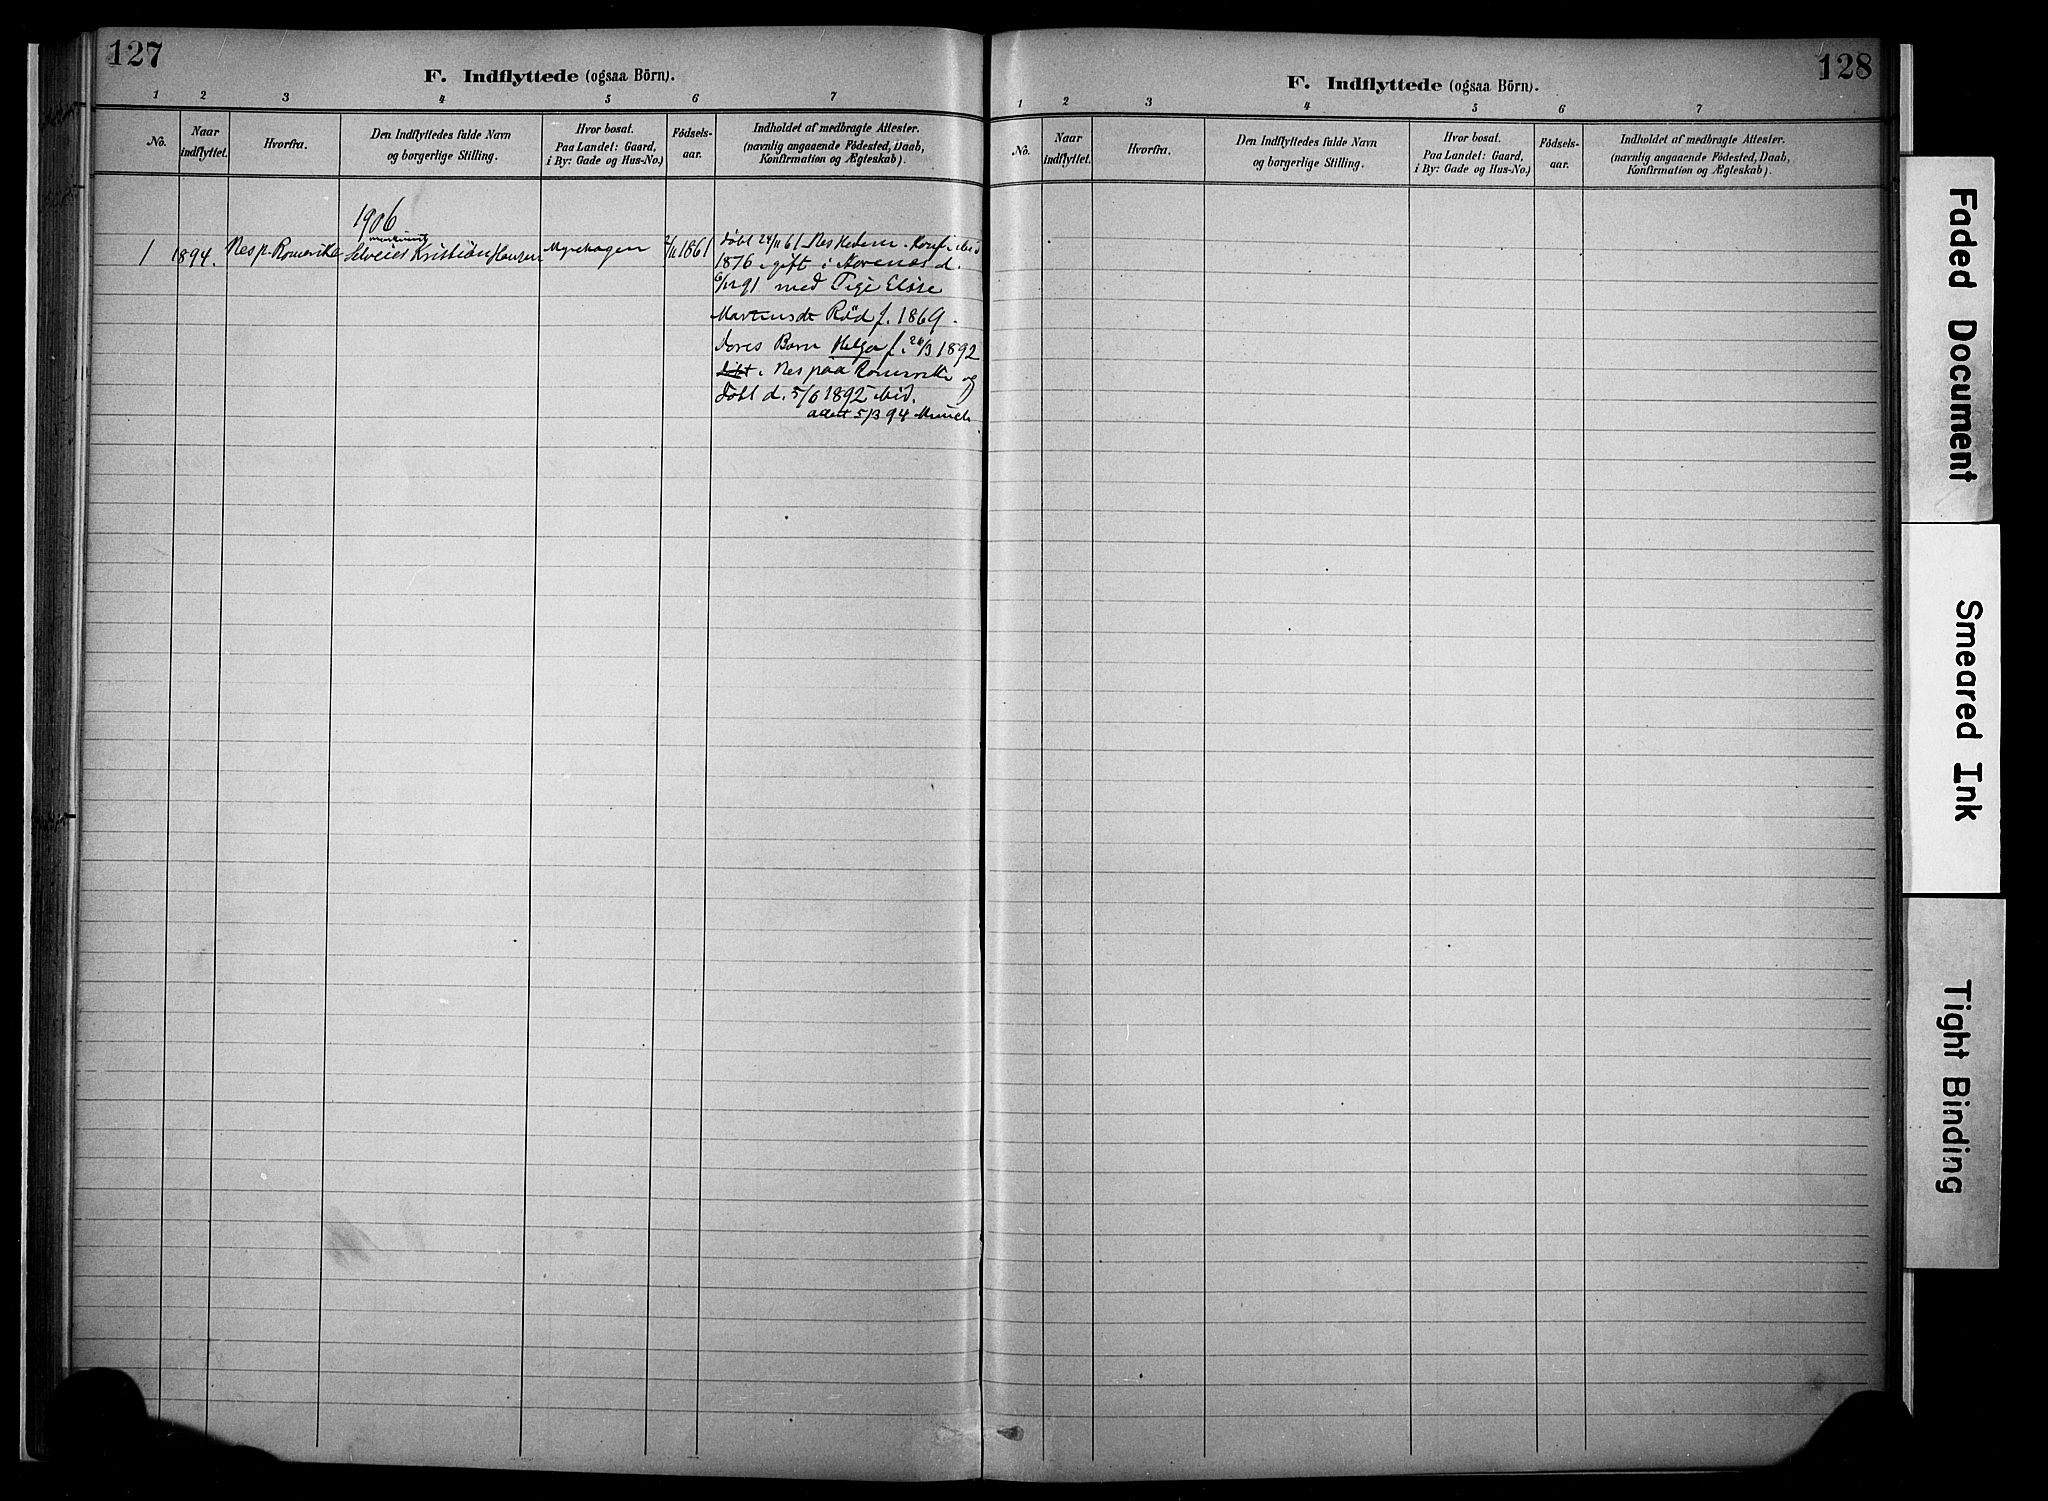 127
F. Indflyttede (ogsaa Börn).
1 2 3 4 5 6 7
No.
Naar
indflyttet.
Hvorfra.
Den Indflyttedes fulde Navn
og borgerlige Stilling.
Hvor bosat.
Paa Landet: Gaard,
i By: Gade og Hus-No.)
Fødsels-
aar.
Indholdet af medbragte Attester.
(navnlig angaaende Födested, Daab,
Konfirmation og Ægteskab).
1906
1 1894. Nes p. Romerike Kristian Hansen Myrehagen 1861
Døbt 24/11 61 Nes Hedem. Konf. ibid
1876 gift i d.
6/12 91 med
Rød f. 1869.
Deres Barn Helga f. 26/3 1892
i Nes paa Romerike og
døbt d. 5/6 1892 ibid.
5/3 94 Munch
128
F. Indflyttede (ogsaa Börn).
1 2 3 4 5 6 7
No.
Naar
indflyttet.
Hvorfra.
Den Indflyttedes fulde Navn
og borgerlige Stilling.
Hvor bosat.
Paa Landet: Gaard,
i By: Gade og Hus-No.)
Fødsels-
aar.
Indholdet af medbragte Attester.
(navnlig angaaende Födested, Daab,
Konfirmation og Ægteskab).
Faded Document
Smeared Ink
Tight Binding